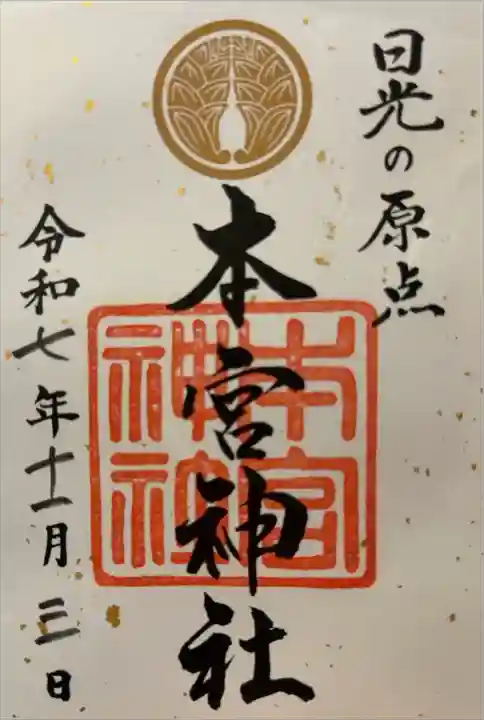 日光の原点
本宮神社
本宮神社
令和七年十一月三日